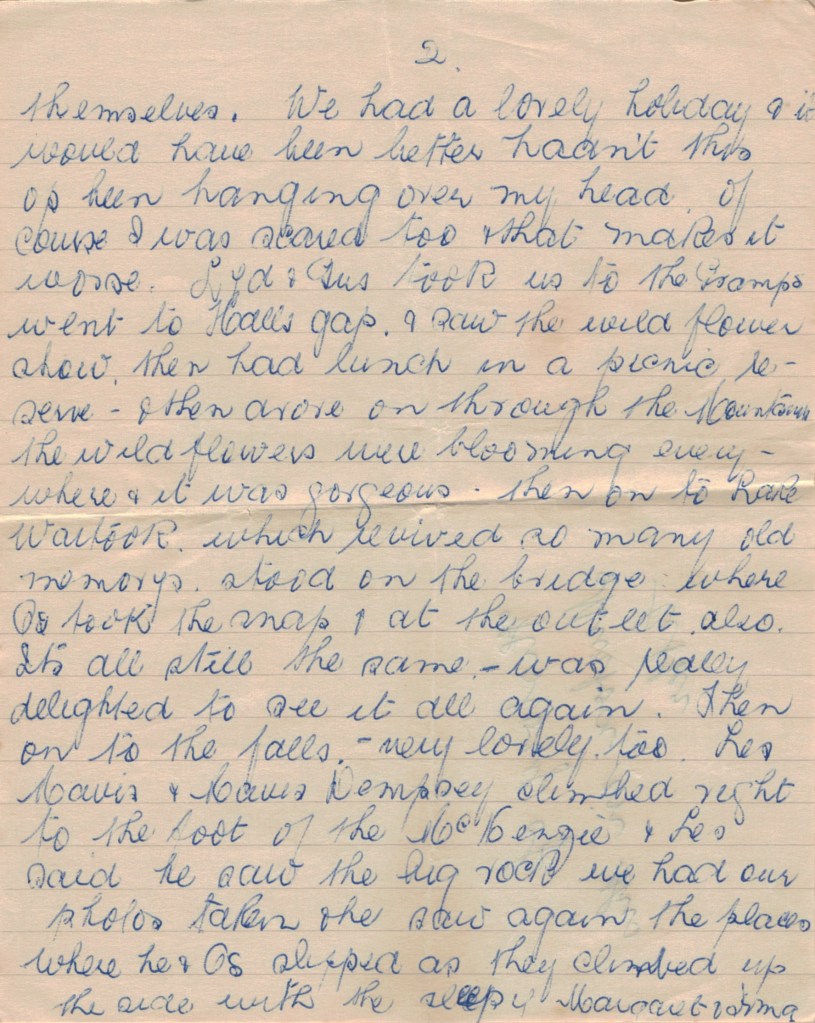 2.
themselves. We had a lovely holiday & it
would have been better hadn't this
op been hanging over my head. of
course I was scared too & that makes it
worse. Lyd & Gus took us to the Gramps
went to Halls gap. & saw the wild flower
show. then had lunch in a picnic re-
serve - & then drove on through the Mountains
the wild flowers were blooming every-
where & it was gorgeous - then on to Lake
Wartook. which revived so many old
memorys. stood on the bridge where
Os took the snap & at the outlet also.
Its all still the same. - was really
delighted to see it all again. Then
on to the falls. - very lovely too. Les
Mavis & Mavis Dempsey climbed right
to the foot of the McKenzie & Les
said he saw the big rock we had our
photos taken & he saw again the places
where he & Os slipped as they climbed up
the side with the Margaret & Irma